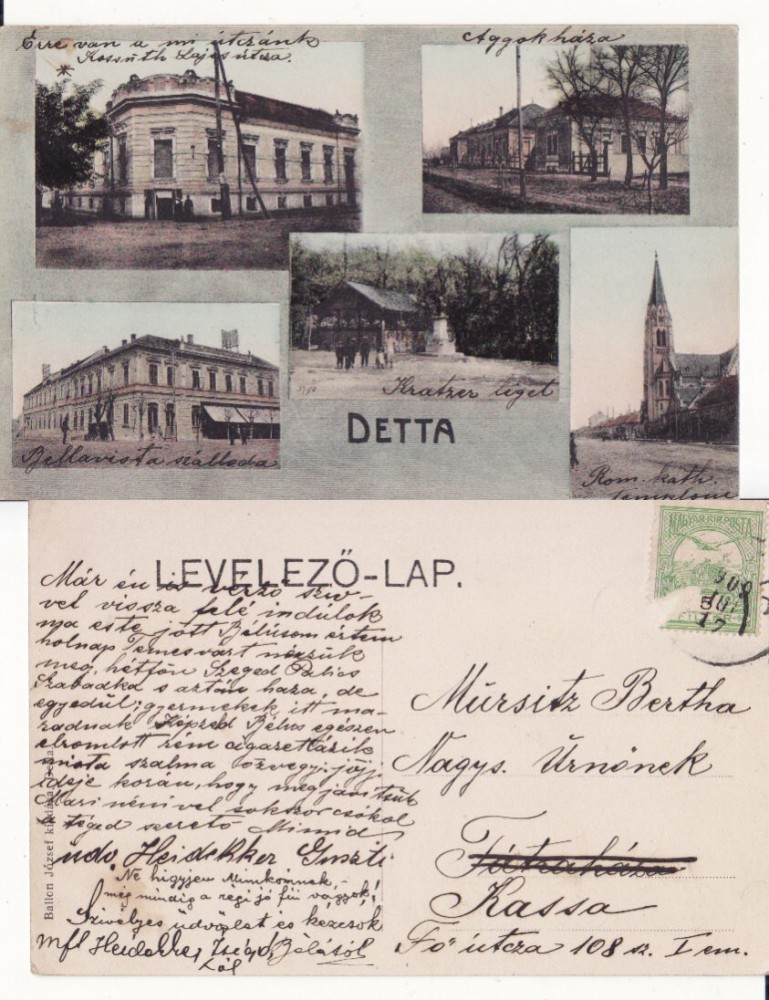 Erre van a mi útczánk
Kossuth Lajos útcza.
Aggok háza
Kratzer liget
Bellavista szálloda
DETTA
Rom. kath.
templom
LEVELEZŐ-LAP.
MAGYAR KIR. POSTA
Már én is verző szív-
vel vissza felé indúlok
ma este jött Bélúsom értem
holnap Temesvárt nézzük
meg, hétfőn Szeged Palics
Szabadka s aztán haza, de
egyedül; gyermekek itt ma-
radnak Képzed Bélus egészen
elromlott rém cigarettázik
miota szalma özvegy; jöjj
ideje korán, hogy megjavítsúk
Mari nénivel sokszor csókol
téged szerető Mimid
üdv Heidekker Guszti
Ne higyjen Mimikémnek,
még mindig a régi jó fiú vagyok!
Szívelyes üdvözlet és kézcsók
Heidekker Bélától
Ballon József kiadása Detta
Múrsitz Bertha
Nagys. Úrnőnek
Tátraháza
Kassa
Fő útcza 108 sz. I em.